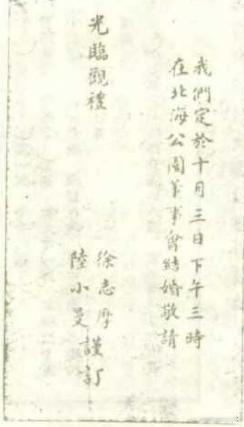 我們定於十月三日下午三時
在北海公園董事會結婚敬請
光臨觀禮
徐志摩
陸小曼 謹訂